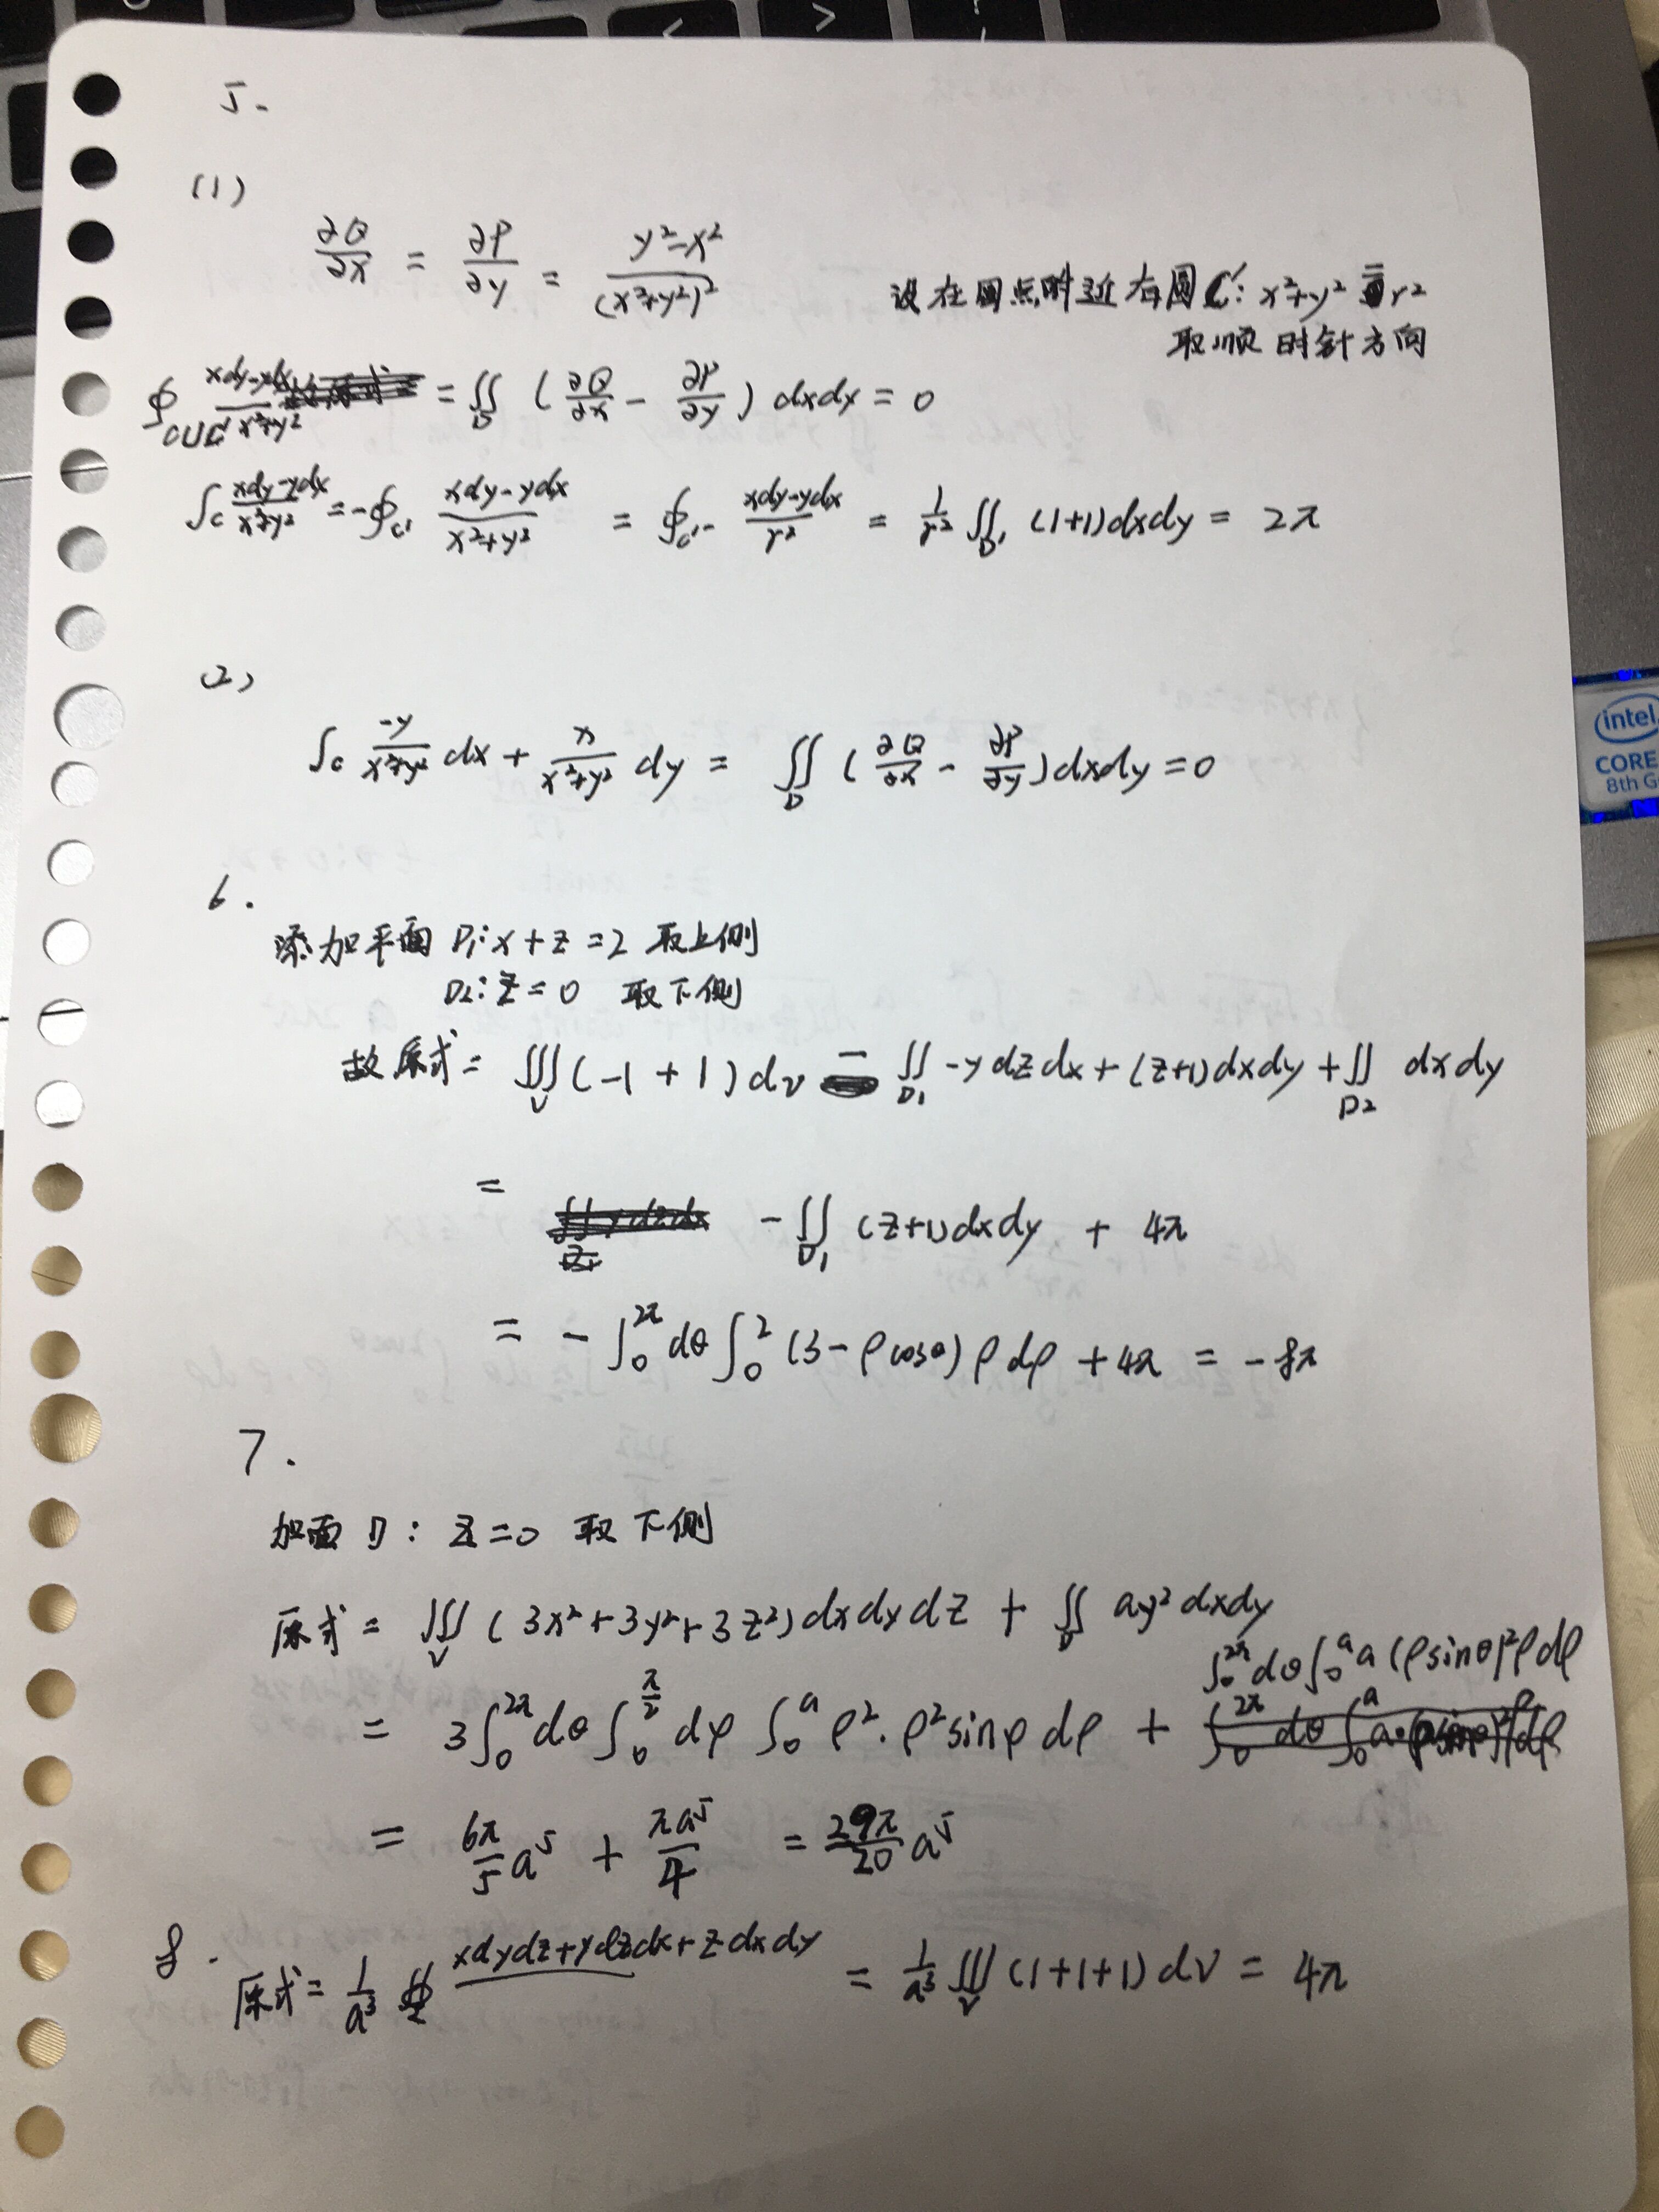 5.
(1)
∂Q/∂x = ∂P/∂y = (y²-x²)/(x²+y²)²
设在圆点附近有圆C': x²+y² = r²
取顺时针方向
∮_{C∪C'} (xdy-ydx)/(x²+y²) = ∬_D (∂Q/∂x - ∂P/∂y) dxdy = 0
∫_C (xdy-ydx)/(x²+y²) = -∮_{C'} (xdy-ydx)/(x²+y²) = ∮_{C'-} (xdy-ydx)/r² = 1/r² ∬_{D'} (1+1)dxdy = 2π
(2)
∫_C -y/(x²+y²) dx + x/(x²+y²) dy = ∬_D (∂Q/∂x - ∂P/∂y)dxdy = 0
6.
添加平面 D₁: x+z=2 取上侧
D₂: z=0 取下侧
故原式 = ∭_V (-1+1)dv - ∬_{D₁} -y dzdx + (z+1)dxdy + ∬_{D₂} dxdy
= -∬_{D₁} (z+1)dxdy + 4π
= -∫₀^{2π} dθ ∫₀² (3-ρcosθ)ρdρ + 4π = -8π
7.
加面 D: z=0 取下侧
原式 = ∭_V (3x²+3y²+3z²)dxdydz + ∬_D ay²dxdy
= 3∫₀^{2π} dθ ∫₀^{π/2} dφ ∫₀^a ρ²·ρ²sinφ dρ + ∫₀^{2π} dθ ∫₀^a a(ρsinθ)²ρdρ
= 6π/5 a⁵ + πa⁵/4 = 29π/20 a⁵
8.
原式 = 1/a³ ∯_Σ xdydz+ydzdx+zdxdy = 1/a³ ∭_V (1+1+1)dV = 4π
intel
CORE
8th G